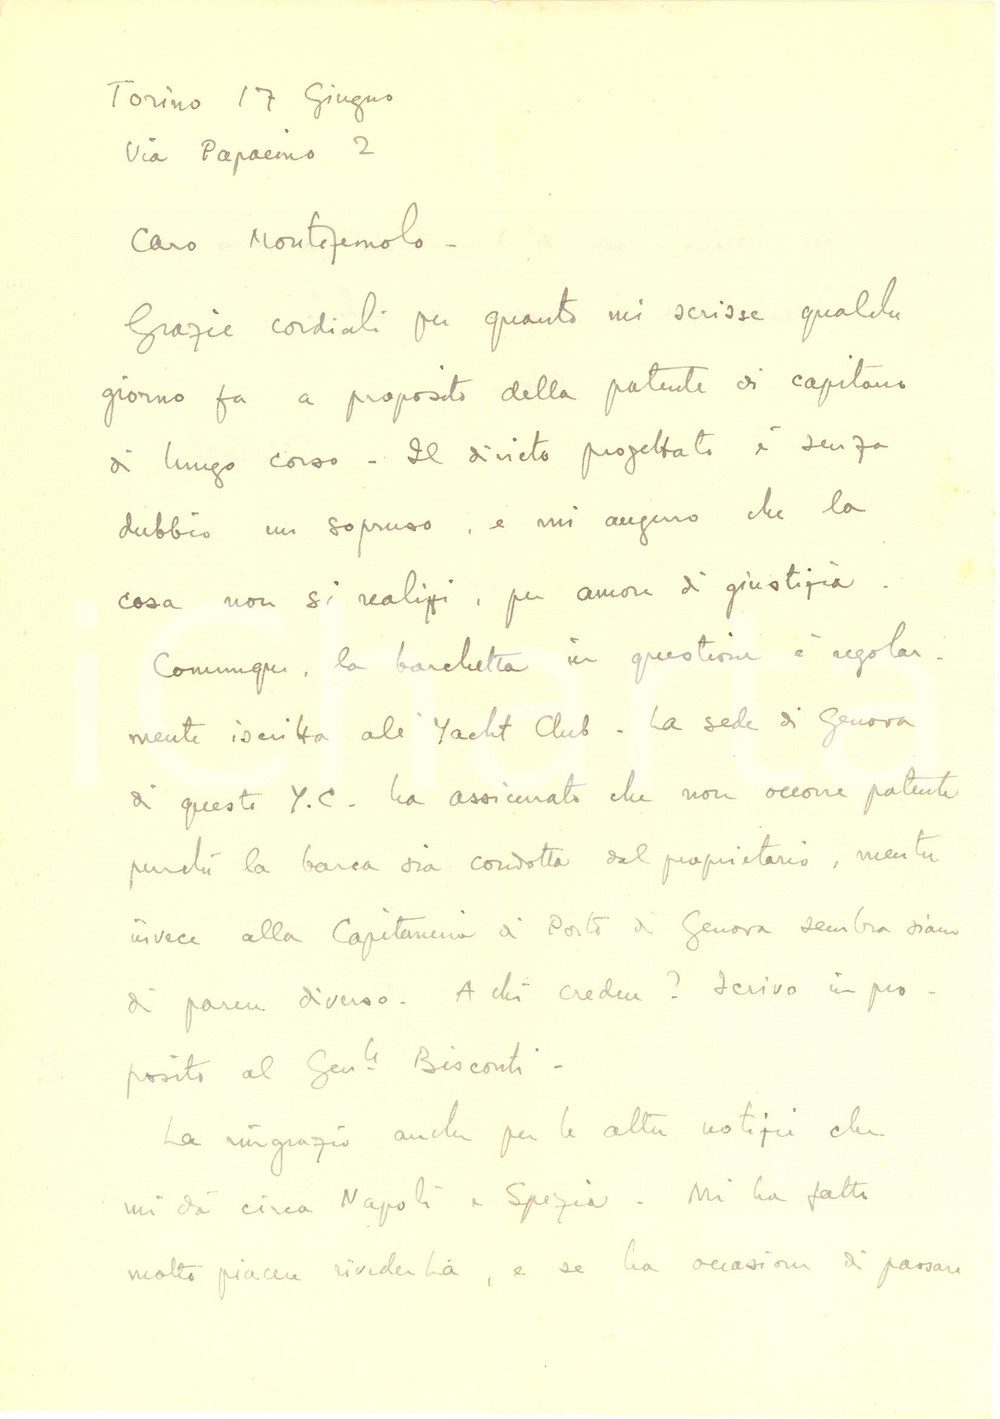 Torino 17 Giugno
Via Papacino 2
Caro Montezemolo -
Grazie cordiali per quanto mi scrisse qualche
giorno fa a proposito della patente di capitano
di lungo corso - Il divieto progettato è senza
dubbio un sopruso, e mi auguro che la
cosa non si realizzi, per amore di giustizia.
Comunque, la barchetta in questione è regolar-
mente iscritta allo Yacht Club. La sede di Genova
di questo Y.C. ha assicurato che non occorre patente
perché la barca sia condotta dal proprietario, mentre
invece alla Capitaneria di Porto di Genova sembra siano
di parere diverso. A chi credere? Scrivo in pro-
posito al Gen.le Bisconti -
La ringrazio anche per le altre notizie che
mi dà circa Napoli e Spezia. Mi ha fatto
molto piacere rivederLa, e se ha occasione di passare
iCharta